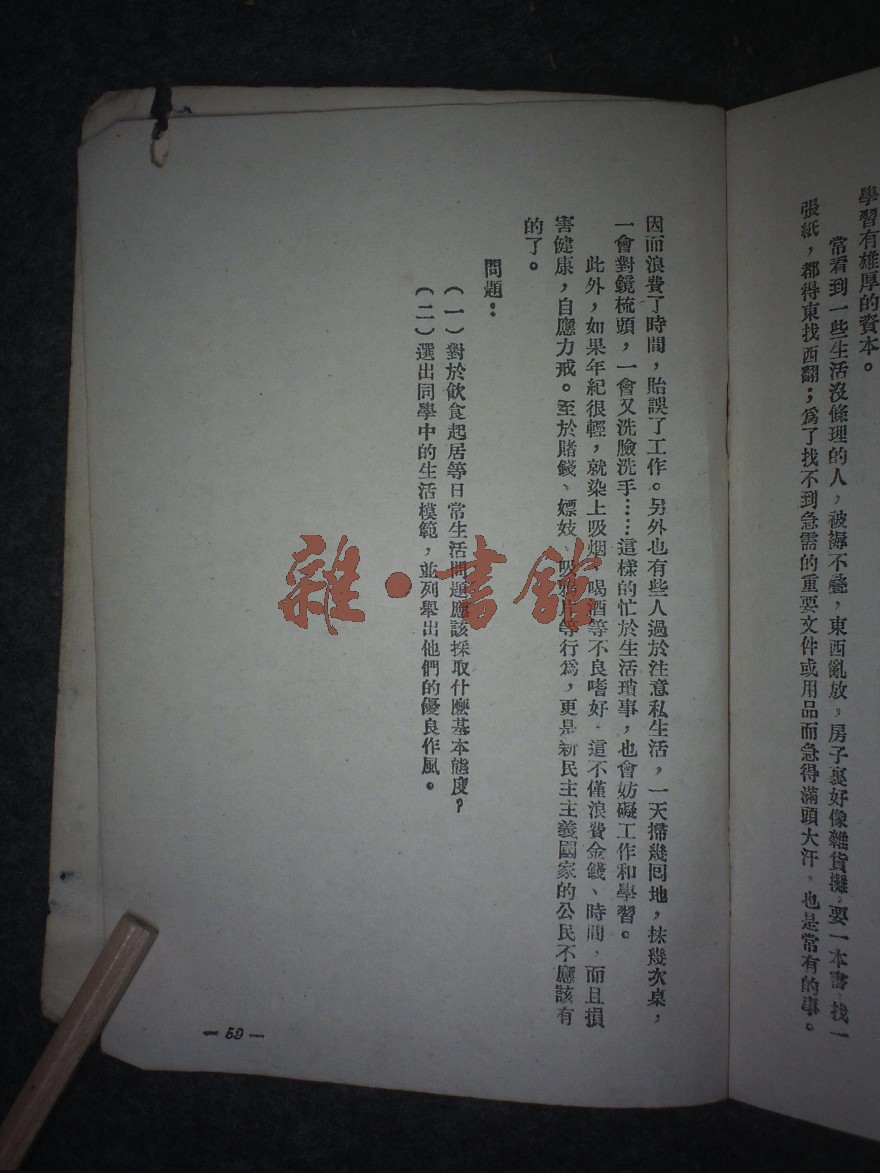 學習有雄厚的資本。
常看到一些生活沒條理的人，被褥不疊，東西亂放，房子裏好像雜貨攤，要一本書，找一
張紙，都得東找西翻；爲了找不到急需的重要文件或用品而急得滿頭大汗、也是常有的事。
因而浪費了時間，貽誤了工作。另外也有些人過於注意私生活，一天掃幾回地，抹幾次桌，
一會對鏡梳頭，一會又洗臉洗手……這樣的忙於生活瑣事，也會妨礙工作和學習。
此外，如果年紀很輕，就染上吸烟、喝酒等不良嗜好，這不僅浪費金錢、時間，而且損
害健康，自應力戒。至於賭錢、嫖妓、吸鴉片等行爲，更是新民主主義國家的公民不應該有
的了。
問題：
（一）對於飲食起居等日常生活問題應該採取什麼基本態度？
（二）選出同學中的生活模範，並列舉出他們的優良作風。
— 59 —
雜·書館